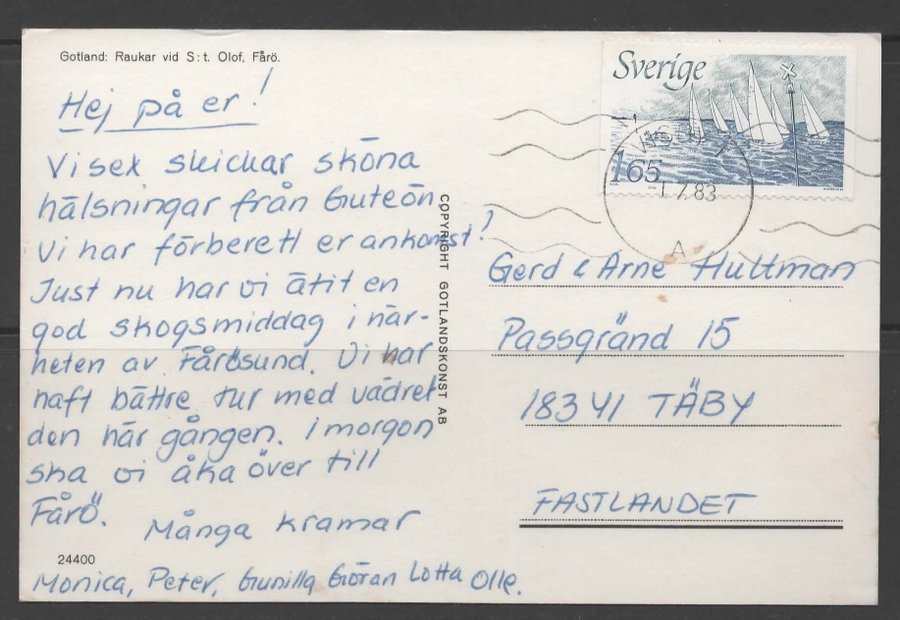 Gotland: Raukar vid S:t. Olof, Fårö.
Hej på er!
Vi sex skickar sköna
hälsningar från Guteön
Vi har förberett er ankomst!
Just nu har vi ätit en
god skogsmiddag i när-
heten av Fårösund. Vi har
haft bättre tur med vädret
den här gången. I morgon
ska vi åka över till
Fårö.
Många kramar
24400
Monica, Peter, Gunilla Göran Lotta Olle.
COPYRIGHT GOTLANDSKONST AB
Sverige
165
-1.7.83
A
Gerd & Arne Hultman
Passgränd 15
183 41 TÄBY
FASTLANDET